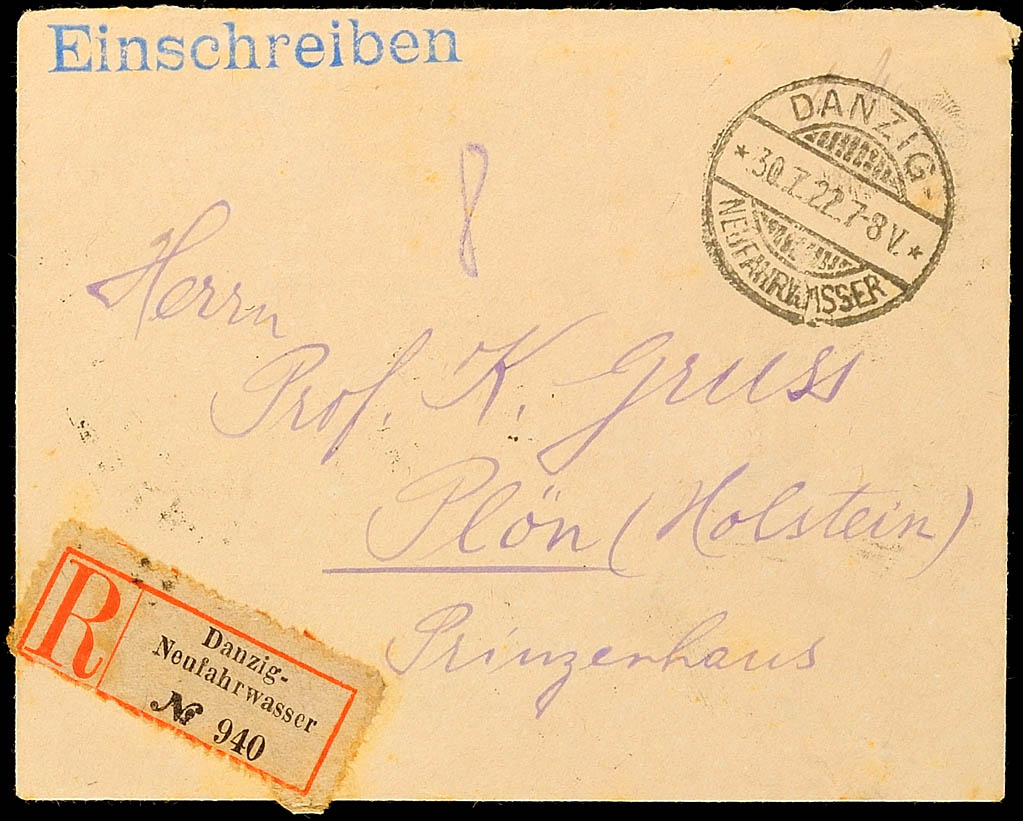 Einschreiben
DANZIG-
* 30.7.22.7-8V. *
NEUFAHRWASSER
8
Herrn
Prof. K. Gruss
Plön (Holstein)
Prinzenhaus
R
Danzig-
Neufahrwasser
№ 940